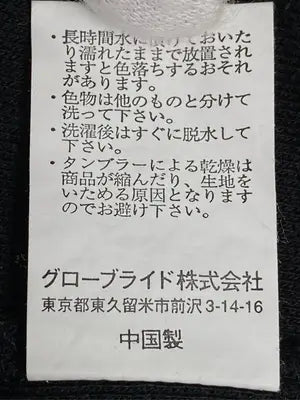 ・長時間水に漬けておいた
り濡れたままで放置され
ますと色落ちするおそれ
があります。
・色物は他のものと分けて
洗って下さい。
・洗濯後はすぐに脱水して
下さい。
・タンブラーによる乾燥は
商品が縮んだり、生地を
いためる原因となります
のでお避け下さい。
グローブライド株式会社
東京都東久留米市前沢3-14-16
中国製